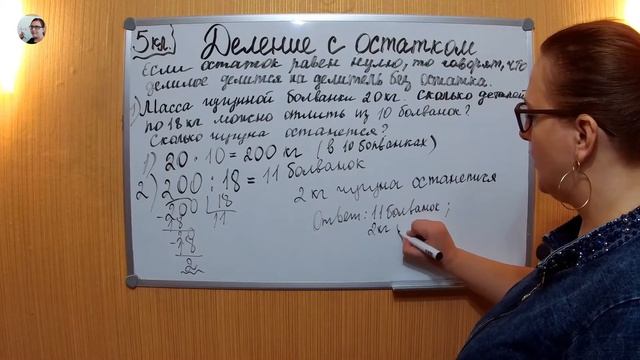 5 кл.
Деление с остатком
Если остаток равен нулю, то говорят, что
делимое делится на делитель без остатка.
1) Масса чугунной болванки 20 кг. Сколько деталей
по 18 кг можно отлить из 10 болванок?
Сколько чугуна останется?
1) 20 · 10 = 200 кг (в 10 болванках)
2) 200 : 18 = 11 болванок
2 кг чугуна останется
200 18
18 11
20
18
2
Ответ: 11 болванок;
2кг